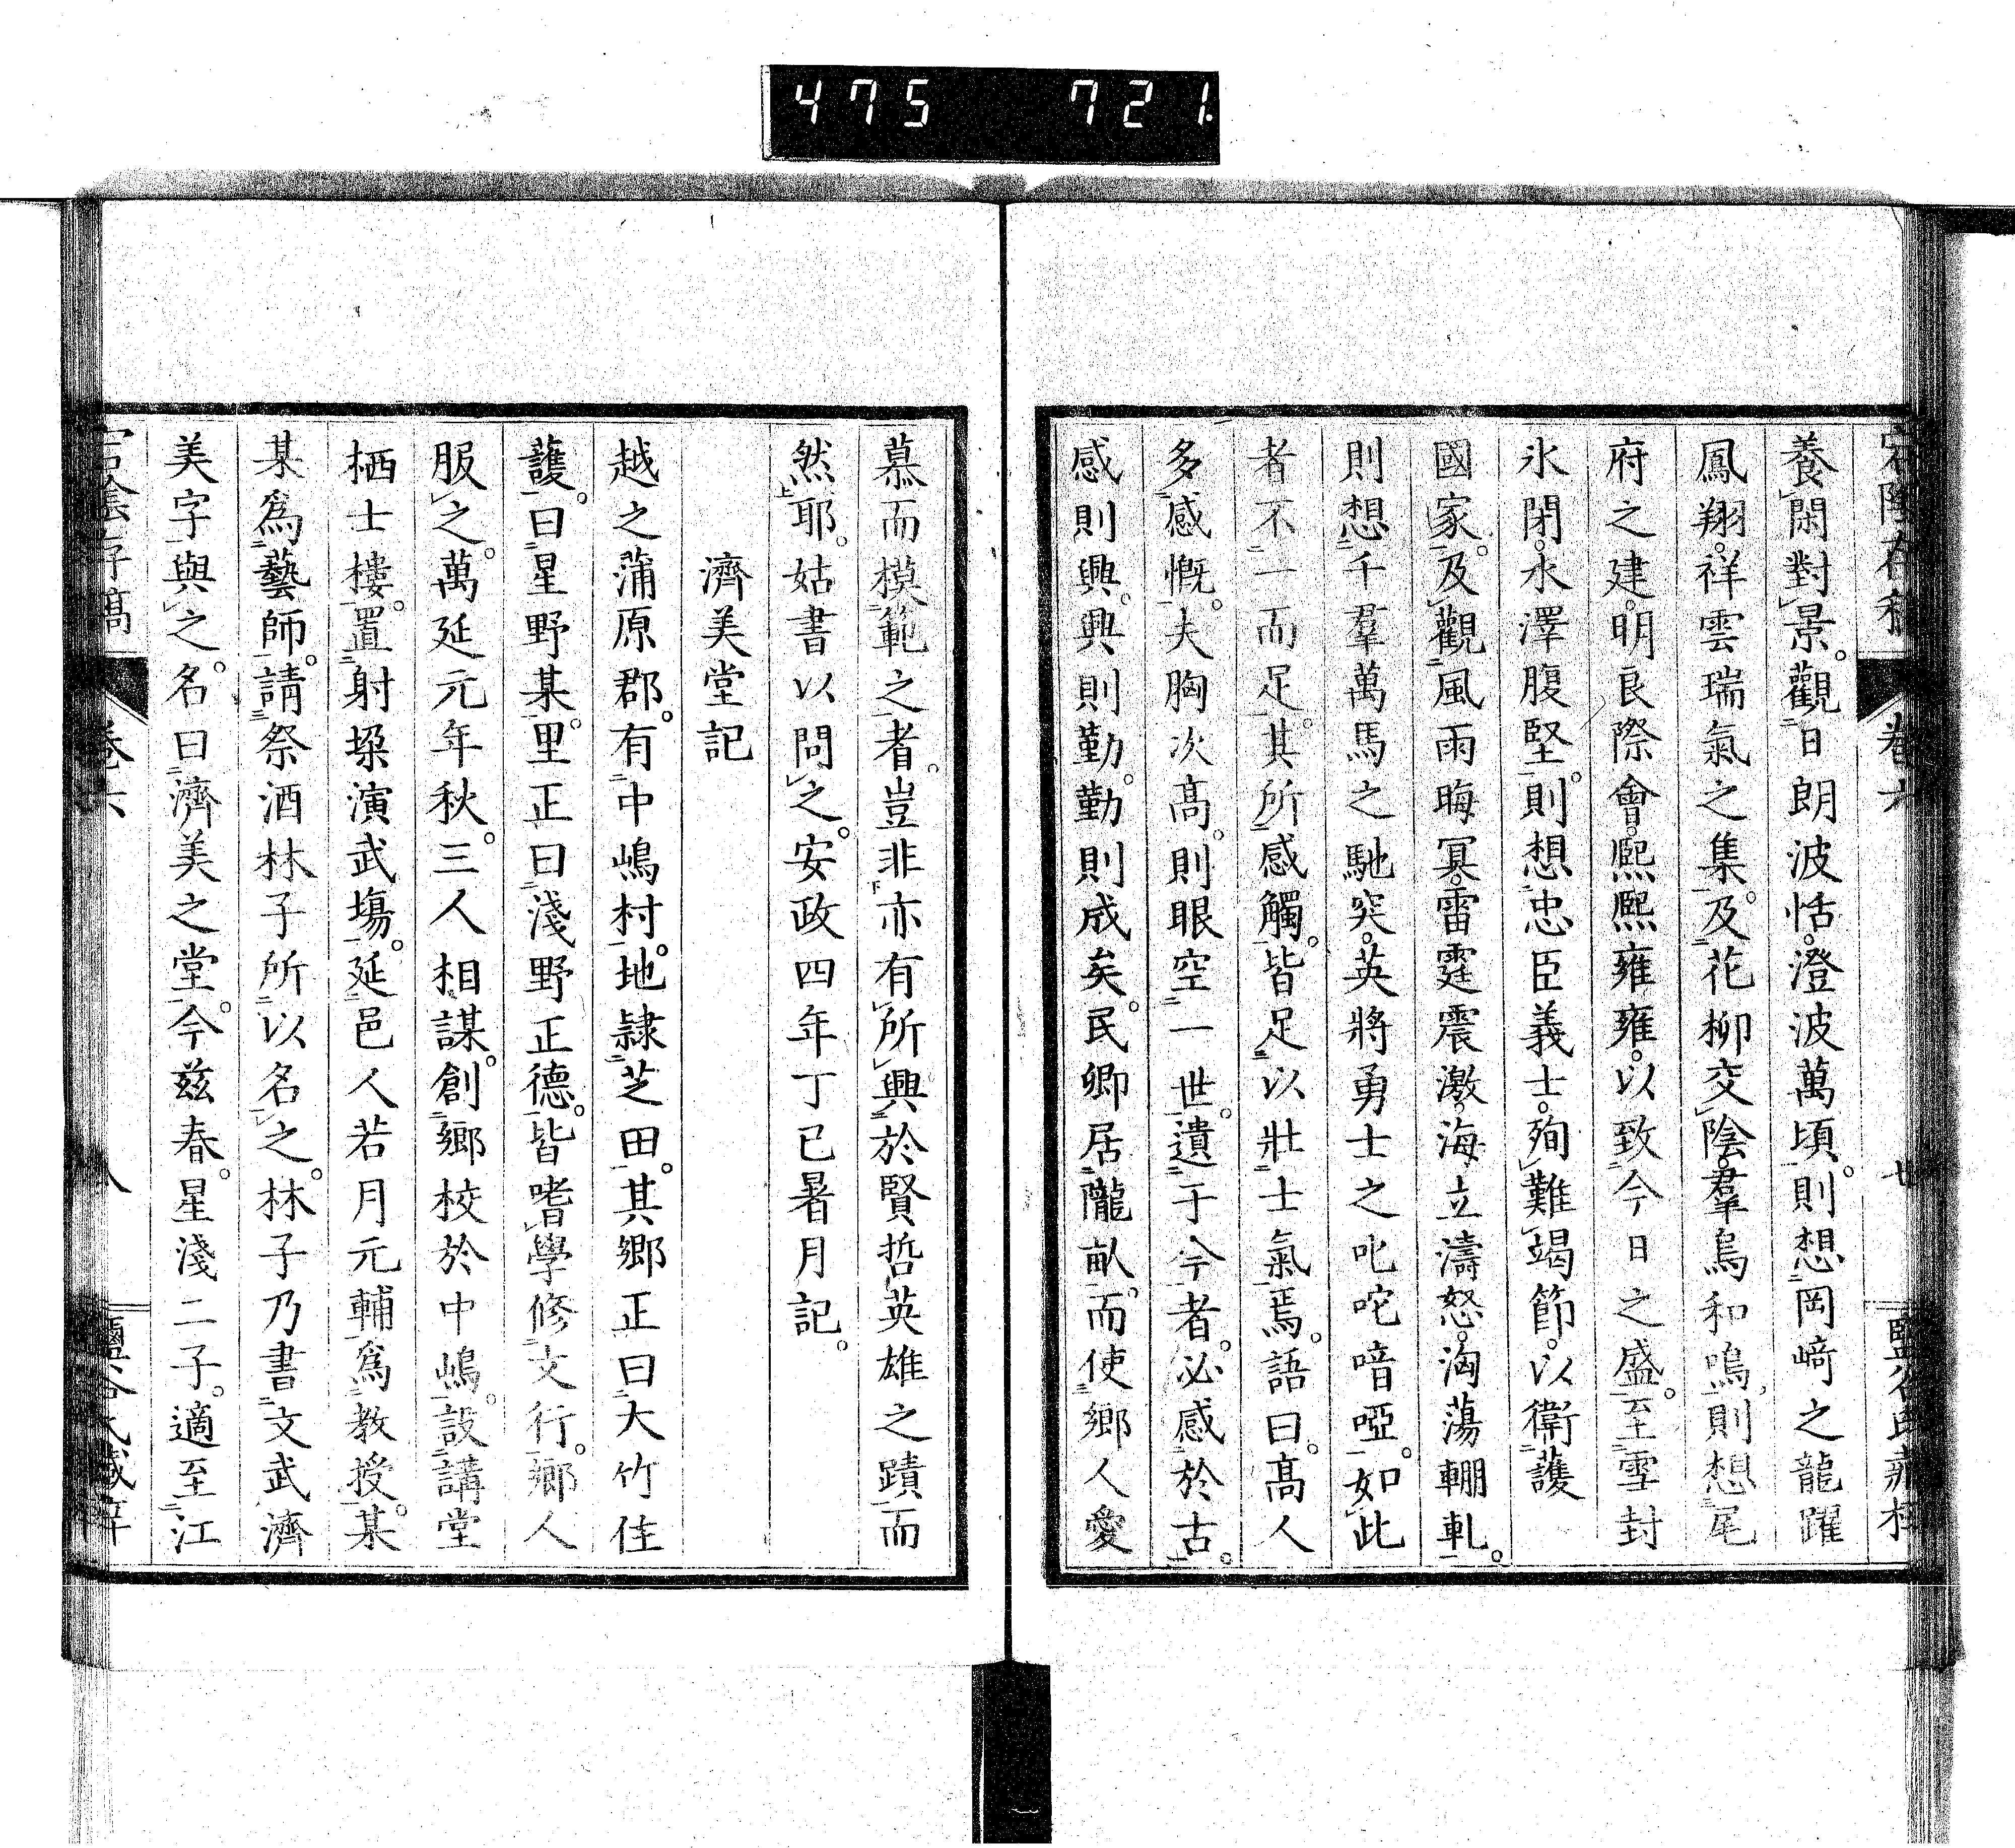 475 721.
卷六
養閑對景。觀日朗波恬。澄波萬頃。則想岡﨑之龍躍
鳳翔。祥雲瑞氣之集。及花柳交陰。羣烏和鳴。則想尾
府之建。明良際會。熈熈雍雍。以致今日之盛。至雪封
氷閉。水澤腹堅。則想忠臣義士。殉難竭節。以衛護
國家。及觀風雨晦冥。雷霆震激。海立濤怒。洶蕩輣軋。
則想千羣萬馬之馳突。英將勇士之叱咤喑啞。如此
者不一而足。其所感觸。皆足以壯士氣焉。語曰。高人
多感慨。夫胸次高。則眼空一世。遺于今者。必感於古。
感則興。興則勤。勤則成矣。民卿居隴畝。而使鄉人愛
慕而模範之者。豈非亦有所興於賢哲英雄之蹟而
然耶。姑書以問之。安政四年丁巳暑月記。
濟美堂記
越之蒲原郡。有中嶋村。地隷芝田。其鄉正曰大竹佳
護。曰星野某。里正曰淺野正德。皆嗜學修文行。鄉人
服之。萬延元年秋。三人相謀。創鄉校於中嶋。設講堂
栖士樓。置射垜演武場。延邑人若月元輔爲教授。某
某爲藝師。請祭酒林子所以名之。林子乃書文武濟
美字與之。名曰濟美之堂。今茲春。星淺二子。適至江
卷六